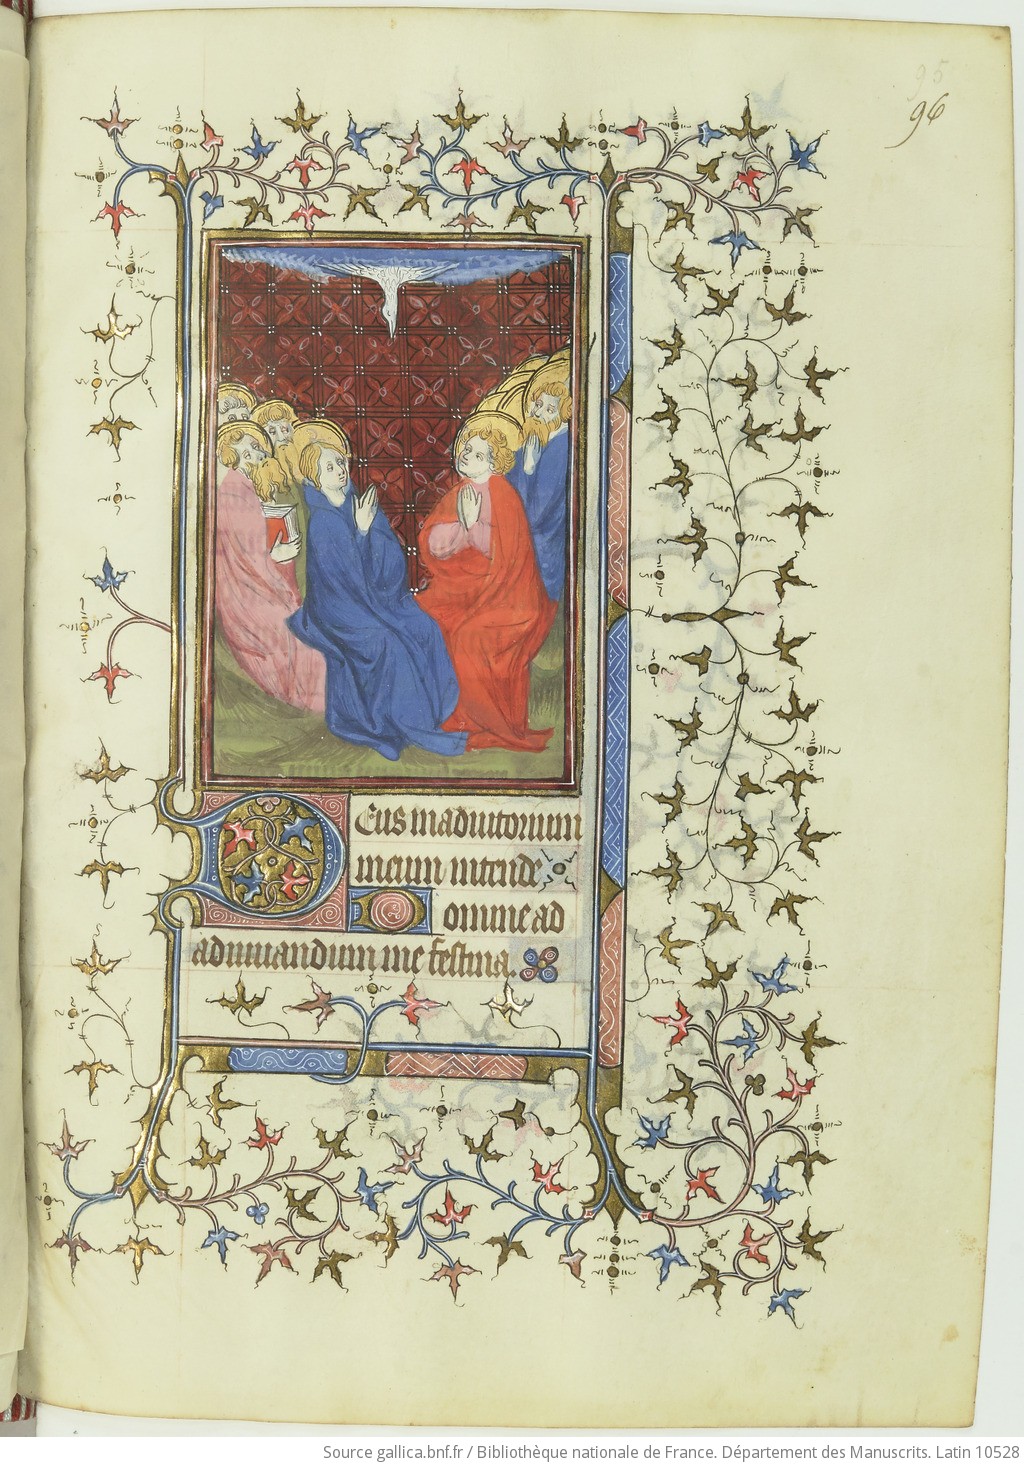 95
96
Deus in adiutorium
meum intende
Domine ad
adiuuandum me festina.
Source gallica.bnf.fr / Bibliothèque nationale de France. Département des Manuscrits. Latin 10528